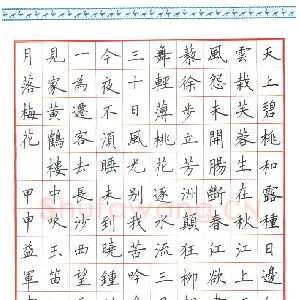 天上碧桃和露種日邊
雲栽芙蓉生在秋江上
風怨未開腸斷春江欲
藜徐步立芳洲顛狂柳
舞輕薄桃花逐水流三
三十日風光別我苦吟
今夜不須睡未到曉鐘
一為遷客去長沙西望
見家黃鶴樓中吹玉笛
月落梅花 甲申益軍